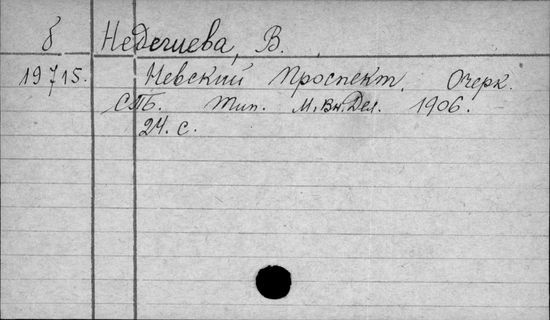 б Недешева, В.
19715. Невский проспект. Очерк.
СПБ. Тип. М.Вн.Дел. 1906.
24. с.